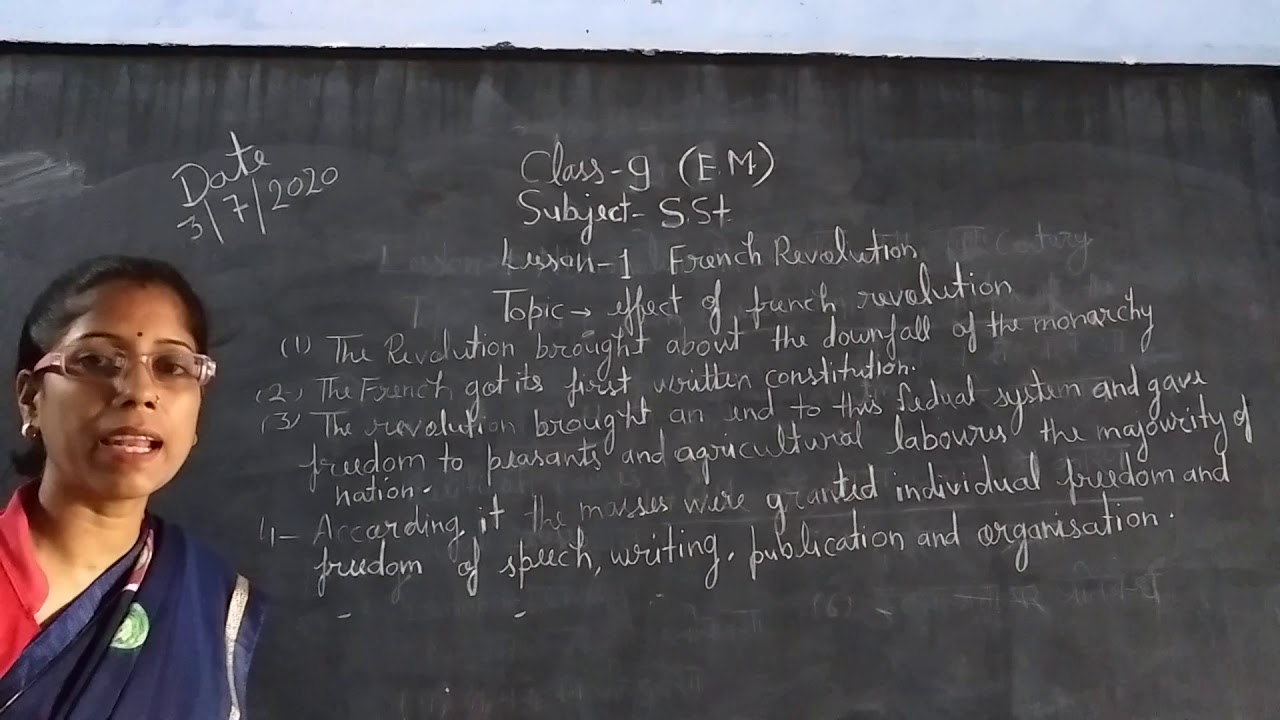 Date
3/7/2020
Class-9 (E.M.)
Subject- S.St.
Lesson-1 French Revolution
Topic → effect of french revolution
(1) The Revolution brought about the downfall of the monarchy
(2) The French got its first written constitution.
(3) The revolution brought an end to this fedual system and gave
freedom to peasants and agricultural laboures the majowrity of
nation.
4- According it the masses were granted individual freedom and
freedom of speech, writing, publication and organisation.
(6)